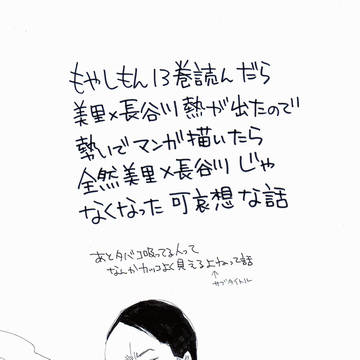 もやしもん13巻読んだら
美里×長谷川熱が出たので
勢いでマンガ描いたら
全然美里×長谷川じゃ
なくなった可哀想な話
あとタバコ吸ってる人って
なんかカッコよく見えるよねって話
↑
サブタイトル